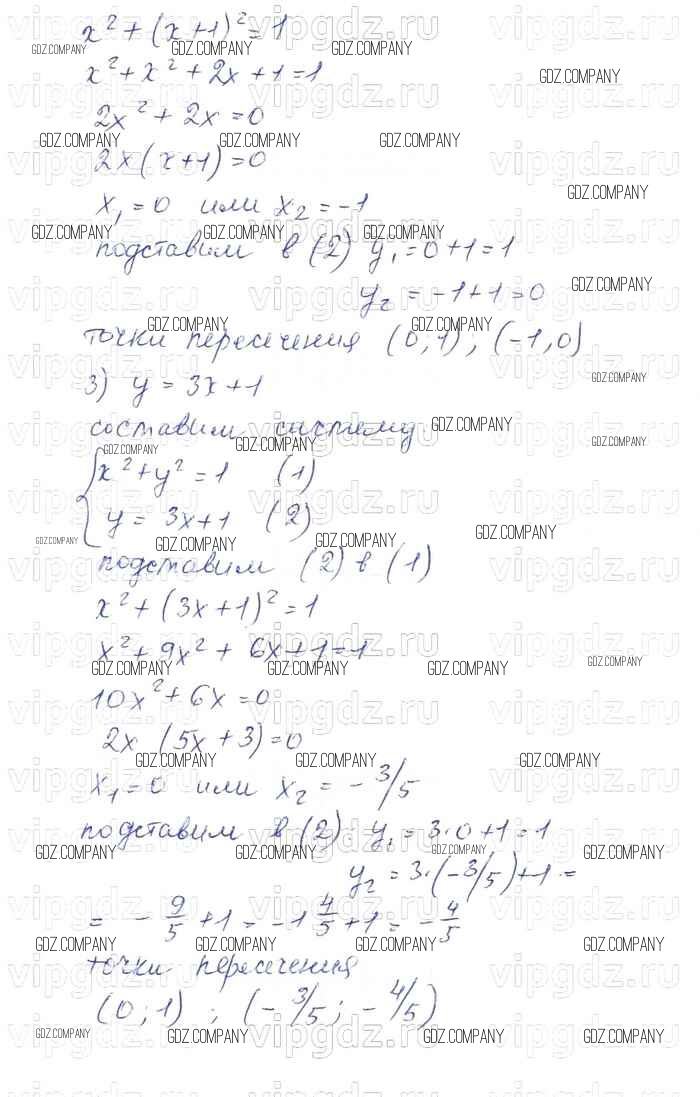 x² + (x+1)² = 1
x² + x² + 2x + 1 = 1
2x² + 2x = 0
2x(x+1) = 0
x₁ = 0 или x₂ = -1
подставим в (2) y₁ = 0+1 = 1
y₂ = -1+1 = 0
точки пересечения (0;1); (-1,0)
3) y = 3x+1
составим систему
{ x² + y² = 1 (1)
y = 3x+1 (2)
подставим (2) в (1)
x² + (3x+1)² = 1
x² + 9x² + 6x + 1 = 1
10x² + 6x = 0
2x (5x+3) = 0
x₁ = 0 или x₂ = - 3/5
подставим в (2) y₁ = 3·0+1 = 1
y₂ = 3·(-3/5)+1 =
= - 9/5 + 1 = -1 4/5 + 1 = - 4/5
точки пересечения
(0;1) ; (- 3/5; - 4/5)
GDZ.COMPANY
vipgdz.ru